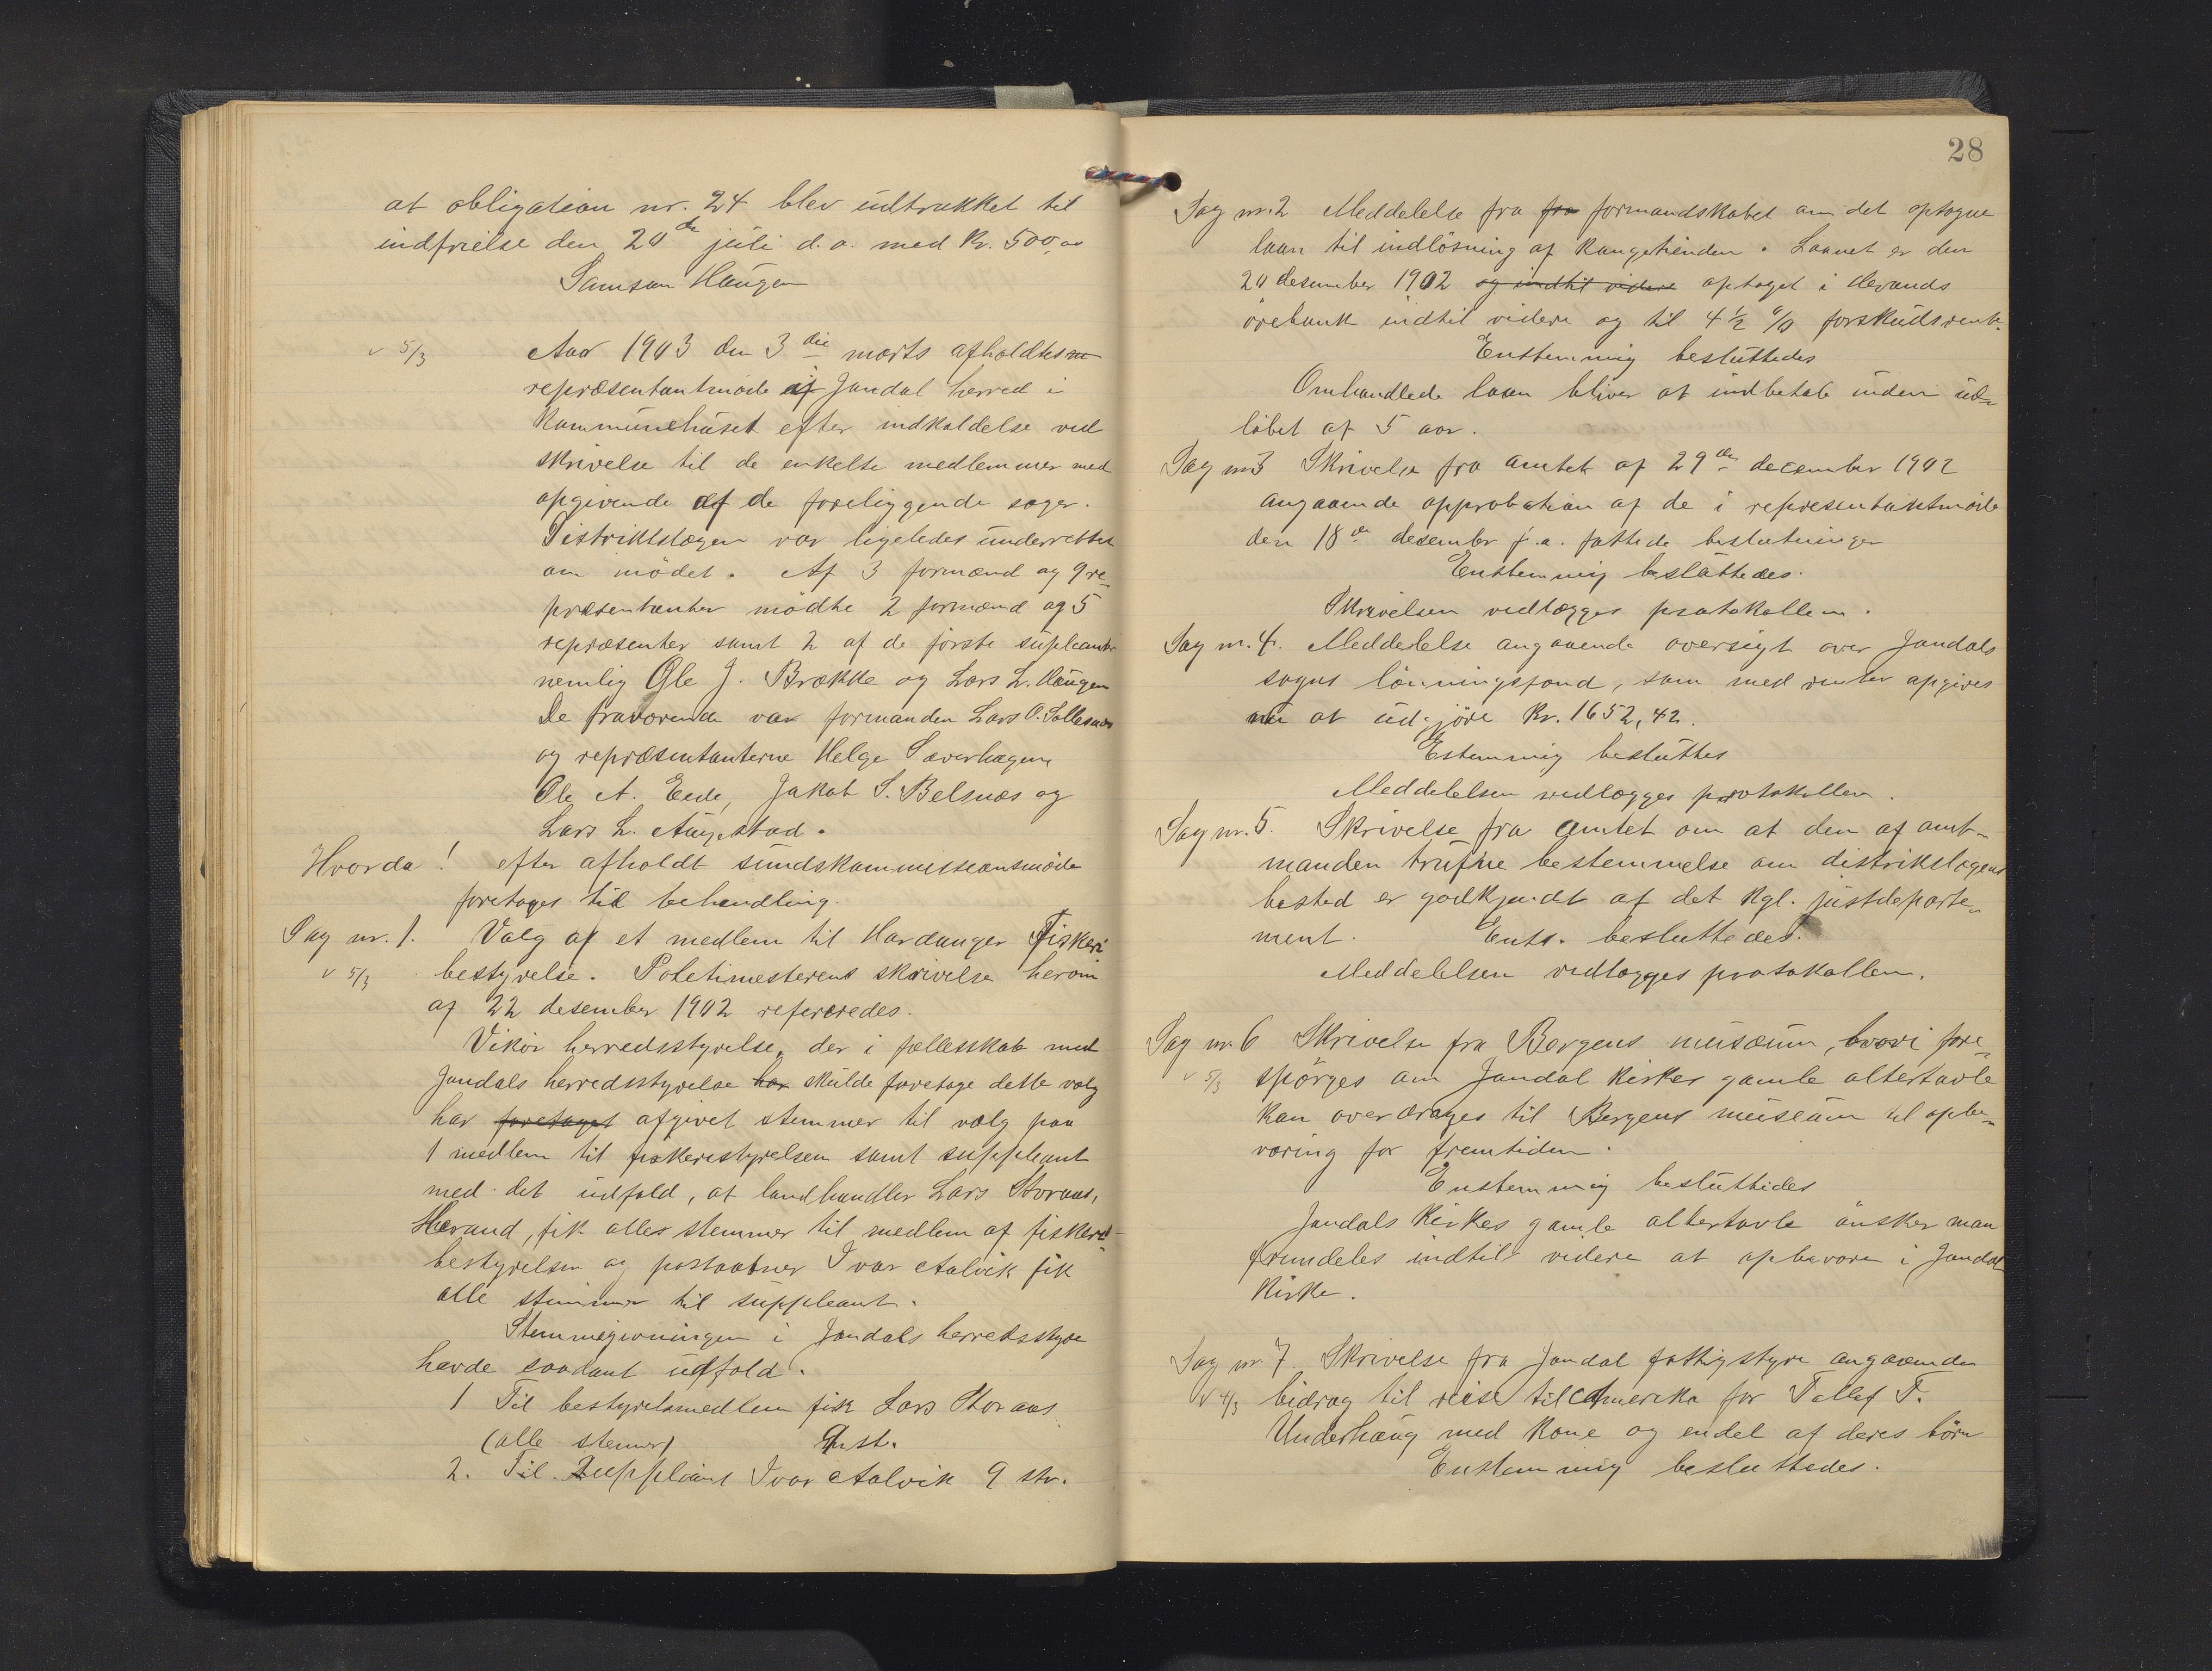 at obligation nr. 24 blev udtrukket til
indfrielse den 20de juli d.a. med Kr. 500,00
Samson Haugen
v 5/3 Aar 1903 den 3die marts afholdtes
repræsentantmöde af Jondal herred i
Kommunehuset efter indkaldelse ved
skrivelse til de enkelte medlemmer med
opgivende af de foreliggende sager.
Distriktslægen var ligeledes underrettet
om mödet. Af 3 formænd og 9 re-
præsentanter mödte 2 formænd og 5
repræsenter samt 2 af de förste supleanter
nemlig Ole J. Brække og Lars L. Haugen
De fraværende var formanden Lars O. Sollesnes
og repræsentanterne Helge Sæverhagen,
Ole A. Eide, Jakob S. Belsnæs og
Lars L. Augestad.
Hvorda! efter afholdt sundskommissionsmöde
foretages til behandling.
Sag nr. 1. Valg af et medlem til Hardanger Fiskeri
v 5/3 bestyrelse. Politimesterens skrivelse herom
af 22 desember 1902 refereredes.
Vikör herredsstyrelse, der i fællesskab med
Jondals herredsstyrelse har skulde foretage dette valg
har foretaget afgivet stemmer til valg paa
1 medlem til fiskeristyrelsen samt suppleant
med det udfald, at landhandler Lars Storaas,
Herand, fik alles stemmer til medlem af fiskeri-
bestyrelsen og postaabner Ivar Aalvik fik
alle stemmer til suppleant.
Stemmegivningen i Jondals herredsstyre
havde saadant udfald.
1 Til bestyrelsmedlem fik Lars Storaas
(alle stemer) 9 st.
2. Til Suppliant Ivar Aalvik 9 str.
28
Sag nr. 2 Meddelelse fra fra formandskabet om det optagne
laan til indlösning af Kongetienden. Laanet er den
20 desember 1902 og indtil videre optaget i Herands
örebank indtil videre og til 4 1/2 % forskudsrente.
Enstemmig besluttedes
Omhandlede laan bliver at indbetale inden ud-
löbet af 5 aar.
Sag nr 3 Skrivelse fra Amtet af 29de december 1902
angaaende approbation af de i representantmöde
den 18de desembr f.a. fattede beslutninger
Enstemmig besluttedes.
Skrivelsen vedlægges protokollen.
Sag nr. 4. Meddelelse angaaende oversigt over Jondals
sogns lönningsfond, som med renter opgives
nu at udgjöre Kr. 1652,42.
Estemmig besluttes
Meddelelsen vedlægges protokollen.
Sag nr. 5. Skrivelse fra Amtet om at den af amt-
manden trufne bestemmelse om distrikslægens
bosted er godkjendt af det Kgl. justdeparte-
ment. Ents. besluttedes.
Meddelelsen vedlægges protokollen.
Sag nr. 6 Skrivelse fra Bergens musæum, hvori fore-
v 5/3 spörges om Jondal Kirkes gamle altertavle
kan overdrages til Bergens museum til opbe-
varing for fremtiden.
Enstemmig besluttedes
Jondals Kirkes gamle altertavle önsker man
fremdeles indtil videre at opbevare i Jondal
Kirke.
Sag nr. 7. Skrivelse fra Jondal fattigstyre angaaende
v 4/3 bidrag til reise til Amerika for Tollef T.
Underhaug med kone og endel af deres börn
Enstemmig besluttedes.